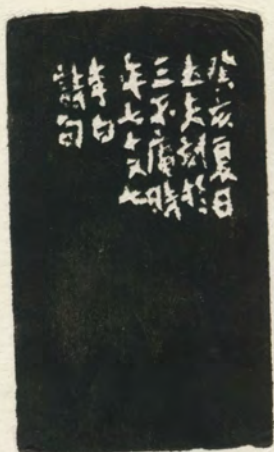 癸亥夏日
夫刻於
三不庵時
年七十又七
李白
詩句